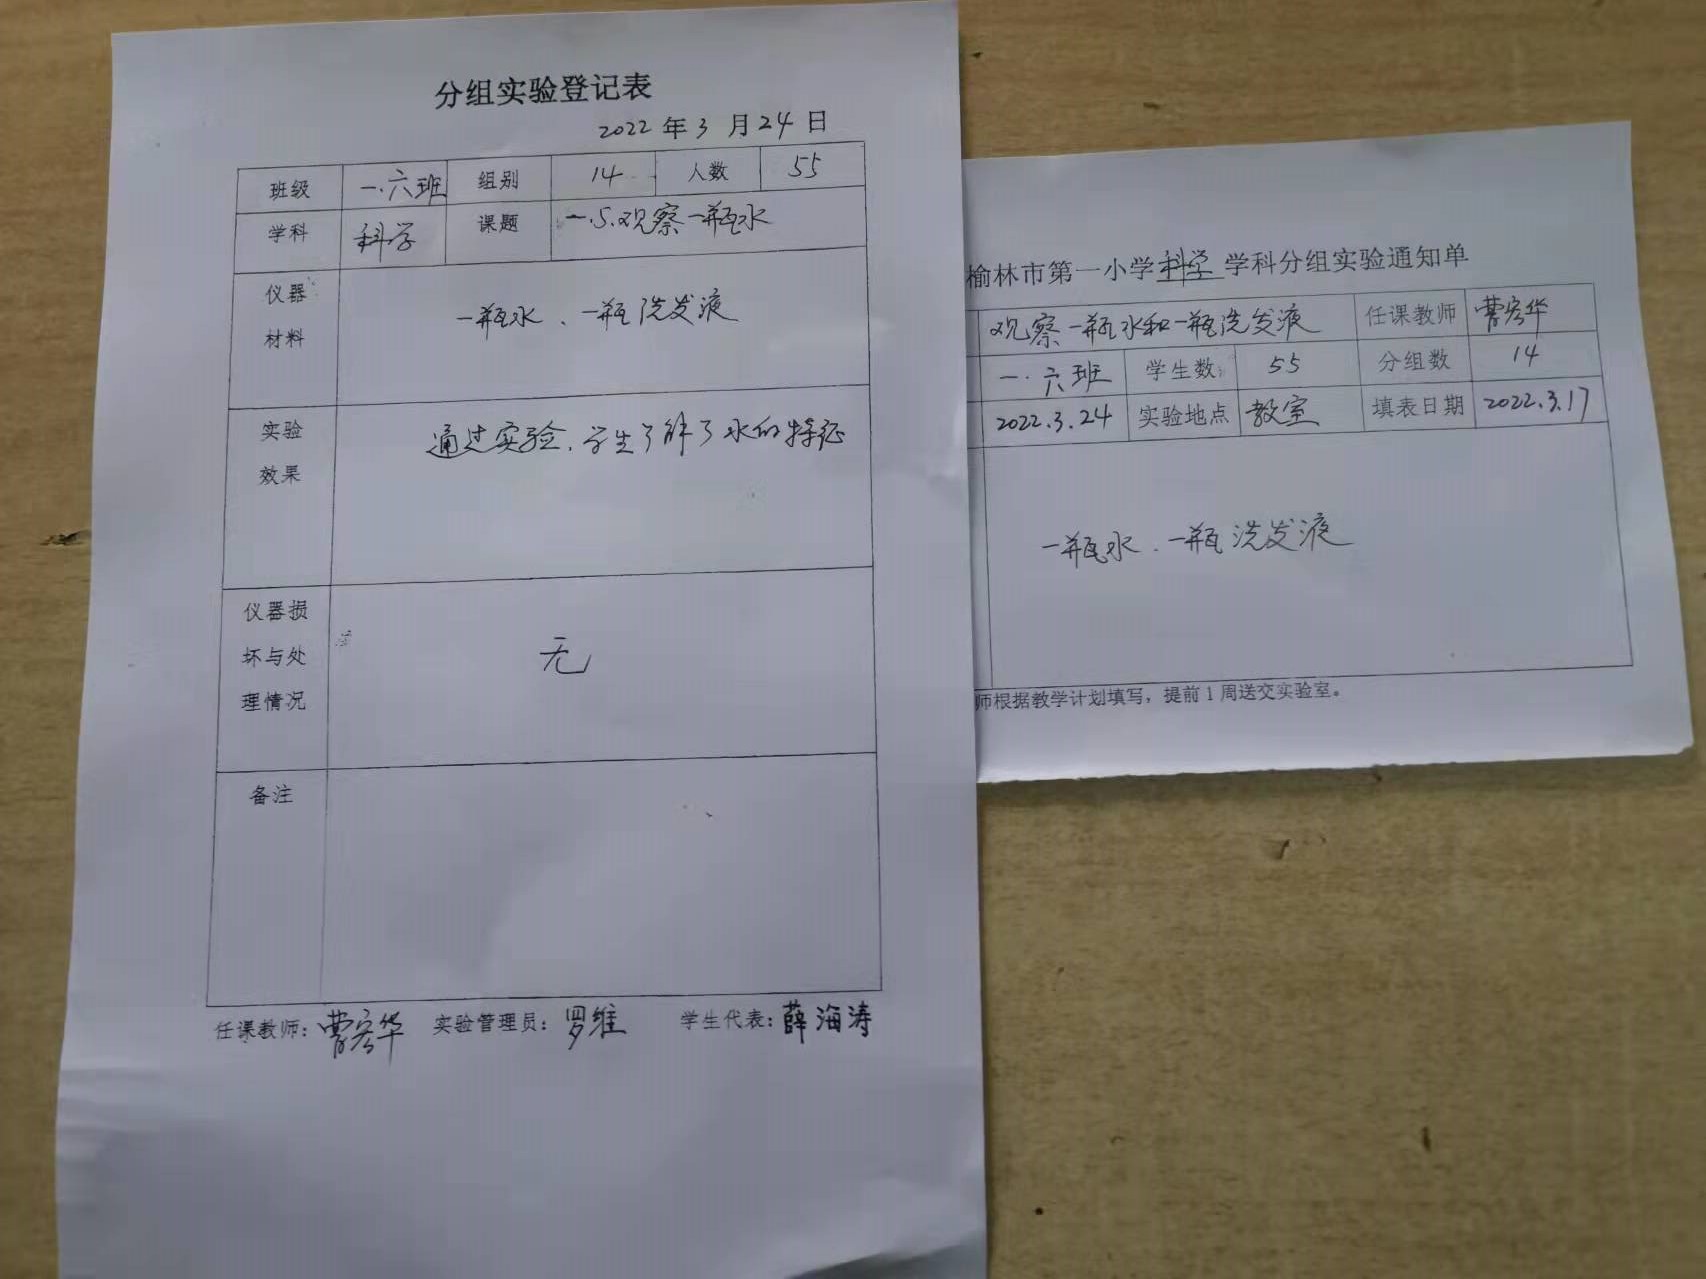 分组实验登记表
2022年3月24日
班级 一.六班 组别 14 人数 55
学科 科学 课题 一.5.观察一瓶水
仪器材料 一瓶水、一瓶洗发液
实验效果 通过实验,学生了解了水的特征
仪器损坏与处理情况 无
备注
任课教师:曹宏华 实验管理员:罗维 学生代表:薛海涛
榆林市第一小学科学学科分组实验通知单
观察一瓶水和一瓶洗发液 任课教师 曹宏华
一.六班 学生数 55 分组数 14
2022.3.24 实验地点 教室 填表日期 2022.3.17
一瓶水、一瓶洗发液
师根据教学计划填写,提前1周送交实验室。